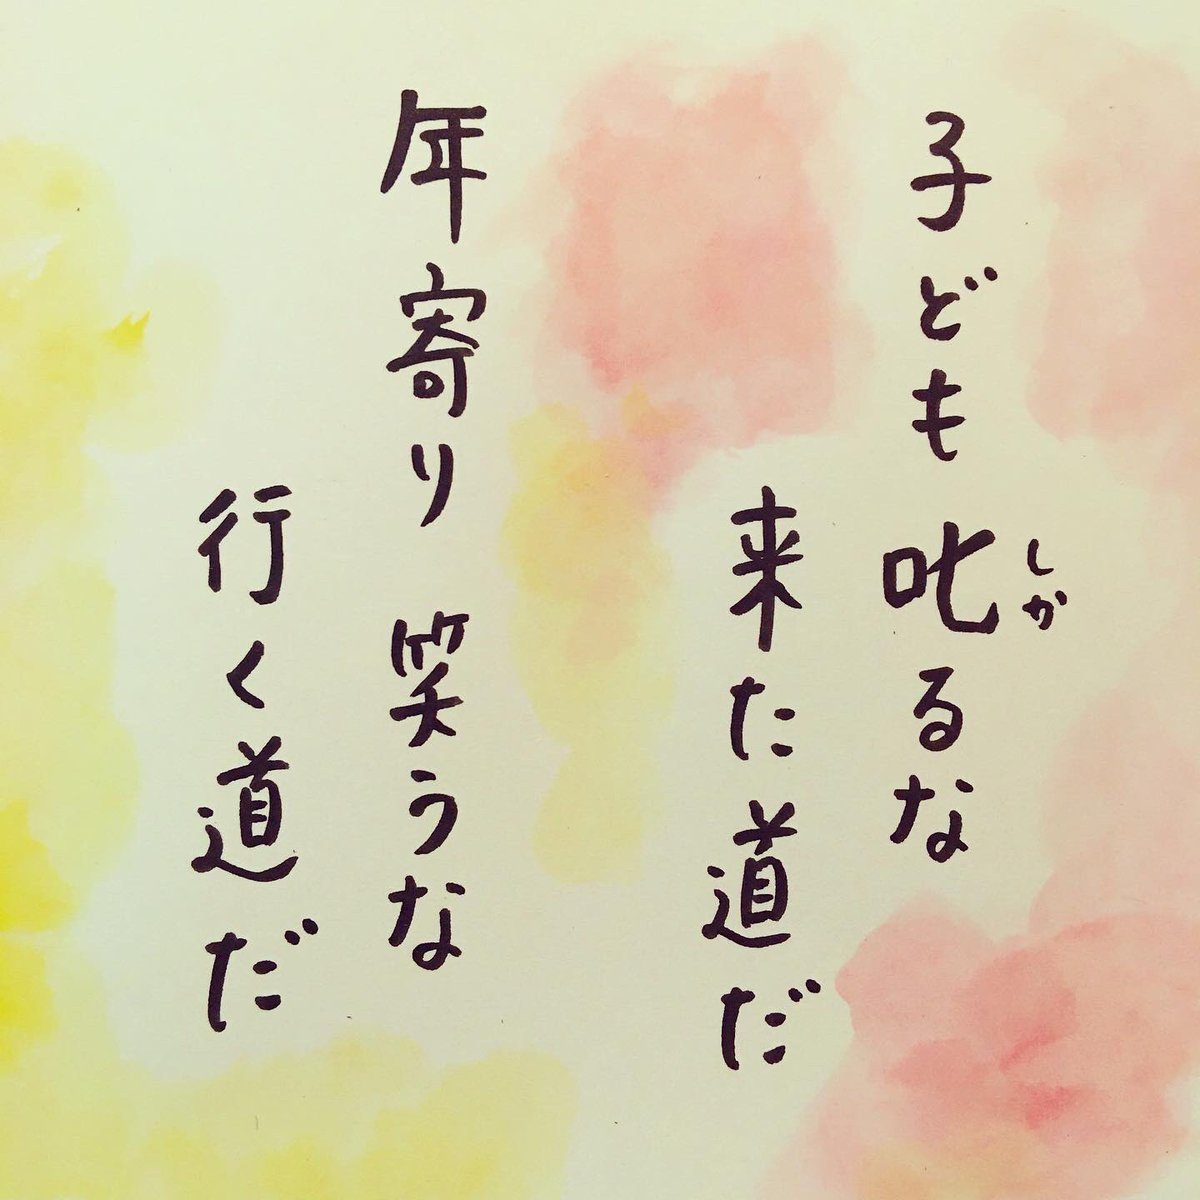 子ども 叱るな
しか
来た道だ
年寄り 笑うな
行く道だ